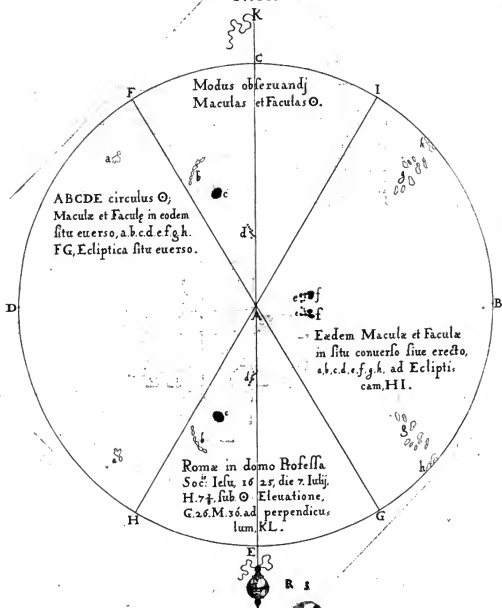 K
C
F
I
Modus obſeruandj
Maculas et Faculas ☉.
a
b
c
h
g
ABCDE circulus ☉;
Maculæ et Faculę in eodem
ſitu euerso, a.b.c.d.e.f.g.h.
FG, Ecliptica ſitu euerso.
d
D
B
e f
e f
A
Eædem Maculæ et Faculæ
in ſitu conuerſo ſiue erecto,
a,b,c,d,e,f,g,h, ad Eclipti⸗
cam, HI.
d
c
b
g
a
h
Romæ in domo Profeſſa
Soc. Ieſu, 1625, die 7. Iulij,
ſub ☉ Eleuatione,
G.26.M.36. ad perpendicu⸗
lum, KL.
H
G
E
R